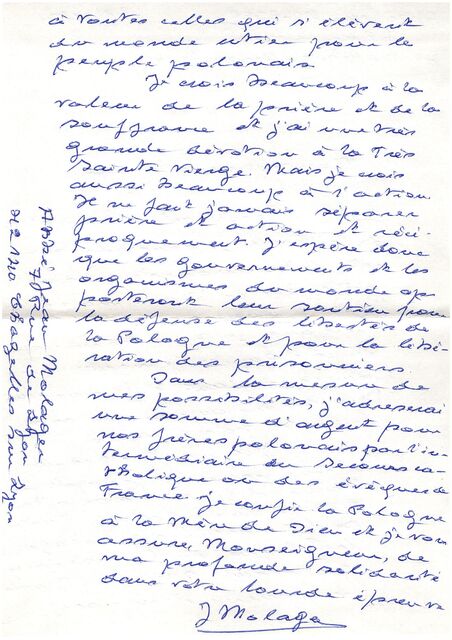 à toutes celles qui s'élèvent
du monde entier pour le
peuple polonais.
Je crois beaucoup à la
valeur de la prière et de la
souffrance et j'ai une très
grande dévotion à la Très
Sainte Vierge. Mais je crois
aussi beaucoup à l'action
Je ne faut jamais séparer
prière et action et réci-
proquement. J'espère donc
que les gouvernements et les
organismes du monde ap-
porteront leur soutien pour
la défense des libertés de
la Pologne et pour la libé-
ration des prisonniers.
Dans la mesure de
mes possibilités, j'adresserai
une somme d'argent pour
nos frères polonais par l'in-
termédiaire du Secours ca-
tholique ou des évêques de
France je confie la Pologne
à la Mère de Dieu et je vous
assure, Monseigneur, de
ma profonde solidarité
dans votre lourde épreuve
J Malaga
Abbé Jean Malagen
7 Rue de Dijon
21120 sur